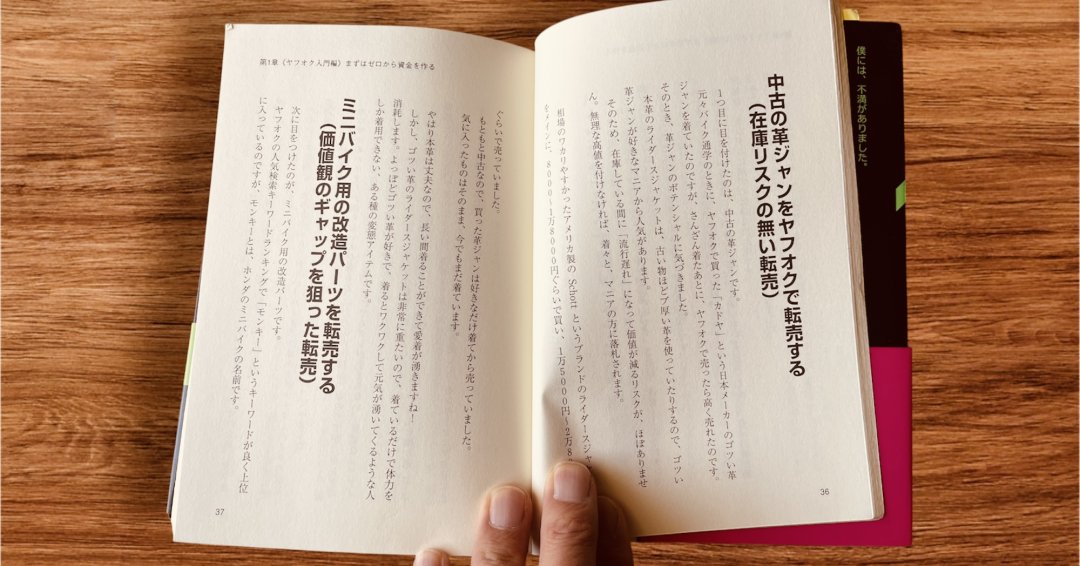 僕には、不満がありました。
中古の革ジャンをヤフオクで転売する
（在庫リスクの無い転売）
1つ目に目を付けたのは、中古の革ジャンです。
元々バイク通学のときに、ヤフオクで買った「カドヤ」という日本メーカーのゴツい革
ジャンを着ていたのですが、さんざん着たあとに、ヤフオクで売ったら高く売れたのです。
そのとき、革ジャンのポテンシャルに気づきました。
本革のライダースジャケットは、古い物ほどブ厚い革を使っていたりするので、ゴツい
革ジャンが好きなマニアから人気があります。
そのため、在庫している間に「流行遅れ」になって価値が減るリスクが、ほぼありませ
ん。無理な高値を付けなければ、着々と、マニアの方に落札されます。
相場のワカりやすかったアメリカ製の Schott というブランドのライダースジャ
をメインに、8000〜1万8000円ぐらいで買い、1万5000円〜2万8
36
第1章〈ヤフオク入門編〉まずはゼロから資金を作る
ぐらいで売っていました。
もともと中古なので、買った革ジャンは好きなだけ着てから売っていました。
気に入ったものはそのまま、今でもまだ着ています。
やはり本革は丈夫なので、長い間着ることができて愛着が湧きますね！
しかし、ゴツい革のライダースジャケットは非常に重たいので、着ているだけで体力を
消耗します。よっぽどゴツい革が好きで、着るとワクワクして元気が湧いてくるような人
しか着用できない、ある種の変態アイテムです。
ミニバイク用の改造パーツを転売する
（価値観のギャップを狙った転売）
次に目をつけたのが、ミニバイク用の改造パーツです。
ヤフオクの人気検索キーワードランキングで「モンキー」というキーワードが良く上位
に入っているのですが、モンキーとは、ホンダのミニバイクの名前です。
37